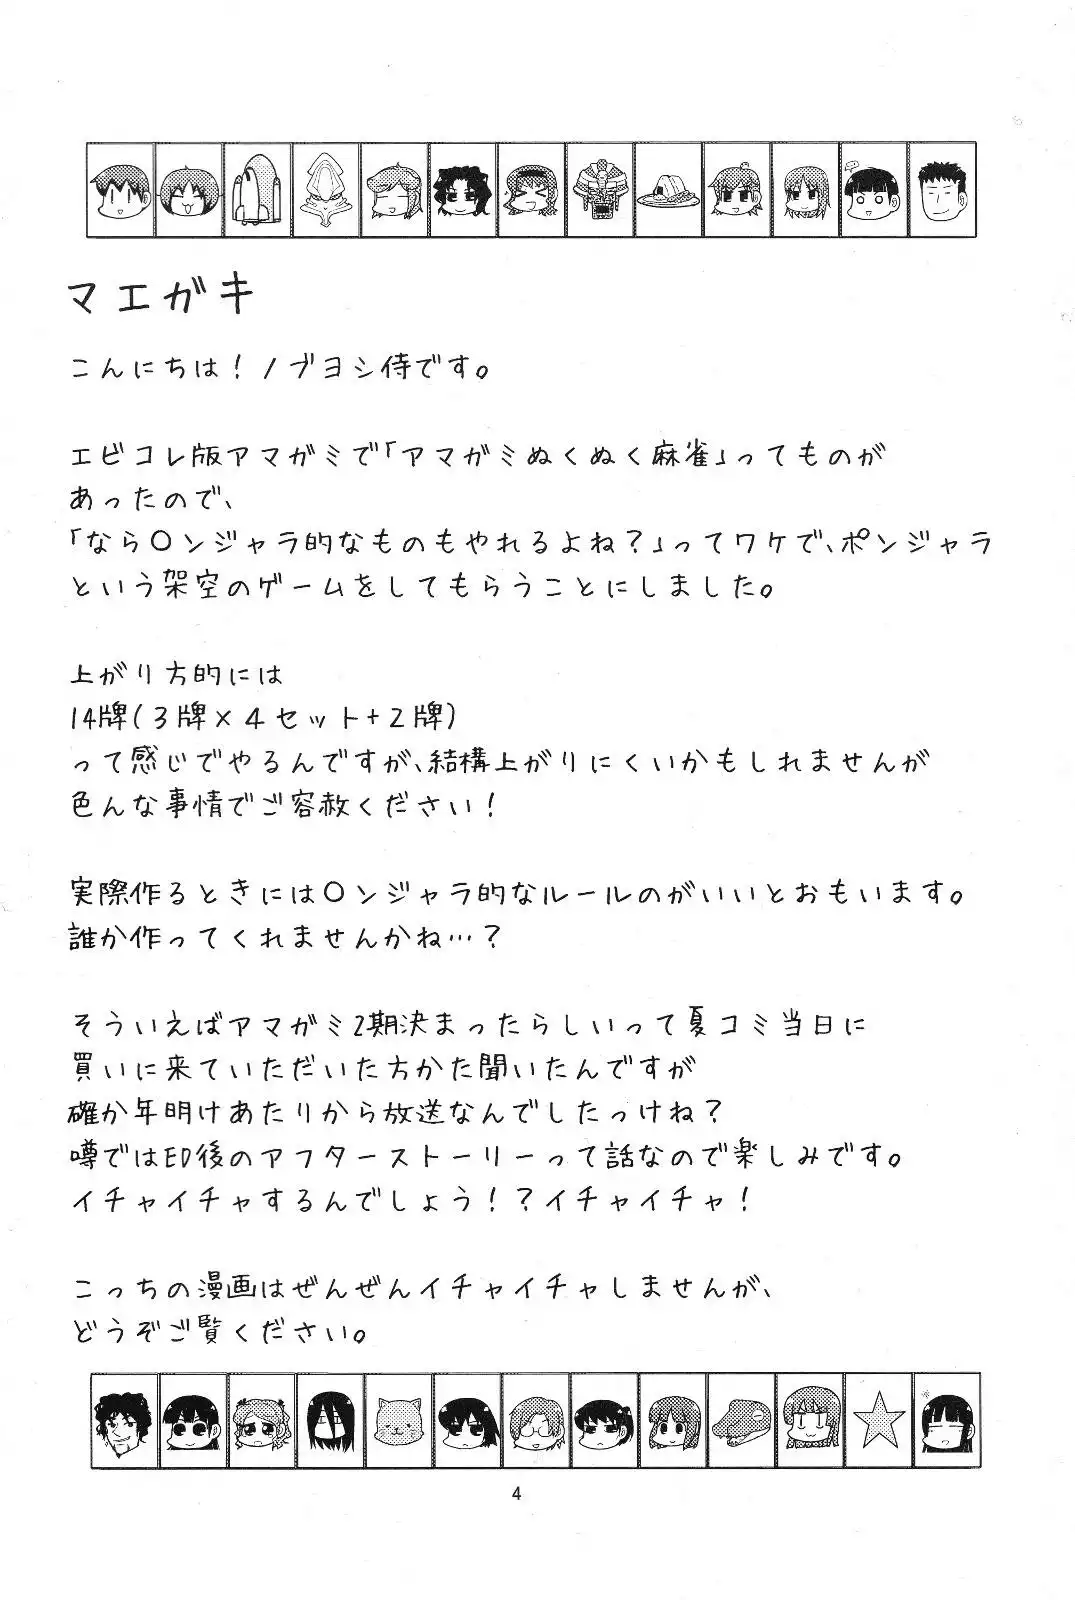 マエガキ
こんにちは！ノブヨシ侍です。
エビコレ版アマガミで「アマガミぬくぬく麻雀」ってものが
あったので、
「なら〇ンジャラ的なものもやれるよね？」ってワケで、ポンジャラ
という架空のゲームをしてもらうことにしました。
上がり方的には
14牌(3牌×4セット+2牌)
って感じでやるんですが、結構上がりにくいかもしれませんが
色んな事情でご容赦ください！
実際作るときには〇ンジャラ的なルールのがいいとおもいます。
誰か作ってくれませんかね…？
そういえばアマガミ2期決まったらしいって夏コミ当日に
買いに来ていただいた方かた聞いたんですが
確か年明けあたりから放送なんでしたっけね？
噂ではED後のアフターストーリーって話なので楽しみです。
イチャイチャするんでしょう！？イチャイチャ！
こっちの漫画はぜんぜんイチャイチャしませんが、
どうぞご覧ください。
4